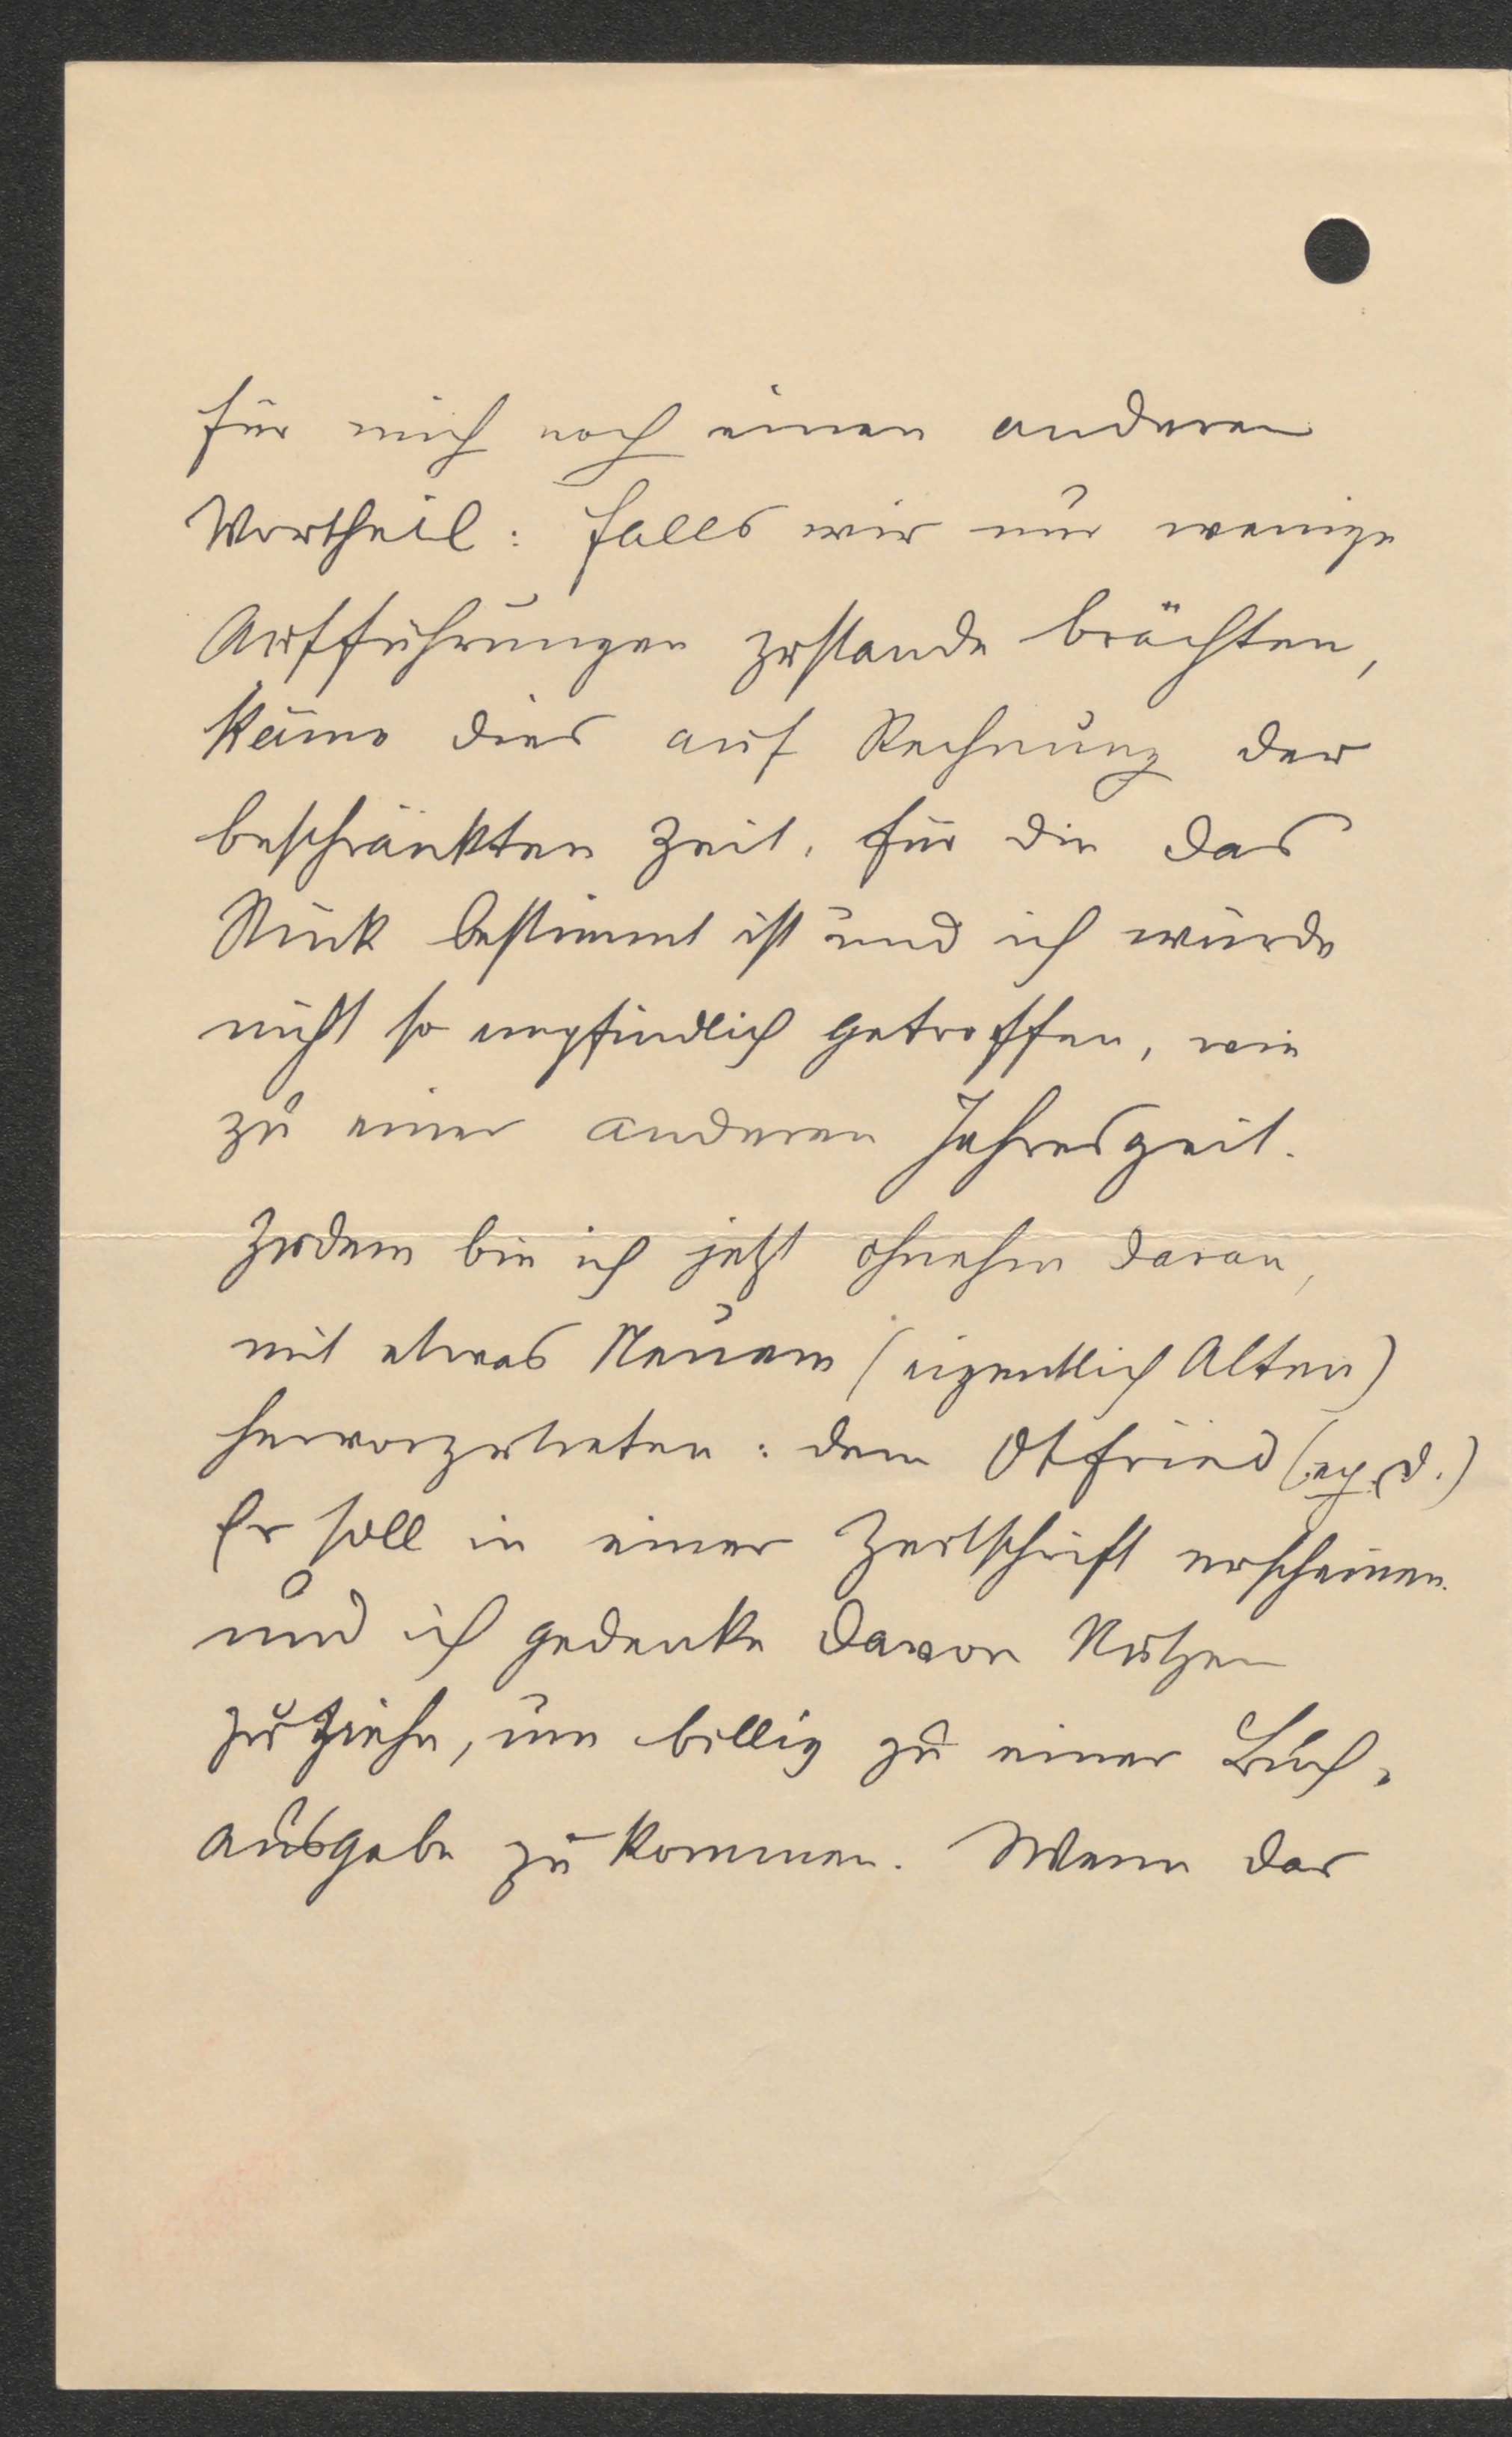 für mich noch einen anderen
Vortheil: falls wir nur wenige
Aufführungen zustande brächten,
käme dies auf Rechnung der
beschränkten Zeit, für die das
Stück bestimmt ist und ich würde
nicht so empfindlich getroffen, wie
zu einer anderen Jahreszeit.
Zudem bin ich jetzt ohnehin daran,
mit etwas Neuem (eigentlich Alten)
hervorzutreten: dem Otfried
Er soll in einer Zeitschrift erscheinen
und ich gedenke davon Nutzen
zu ziehn, um billig zu einer Buch-
ausgabe zu kommen. Wenn das